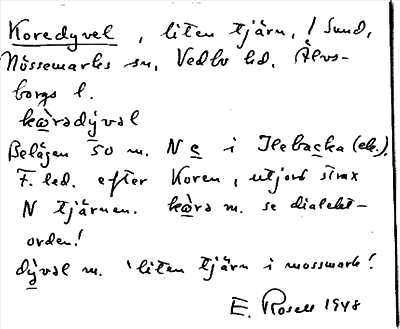 Koredyvel, liten tjärn, i Sund,
Nössemarks sn, Vedbo hd, Älvs-
borgs l.
kὼrədy̍vəl
Belägen 50 m. N e i Ilebacka (ek.).
F. led. efter Koren, utjord strax
N tjärnen. kὼrə m. se dialekt-
orden!
dy̍vəl m. 'liten tjärn i mossmark'.
E. Rosell 1948